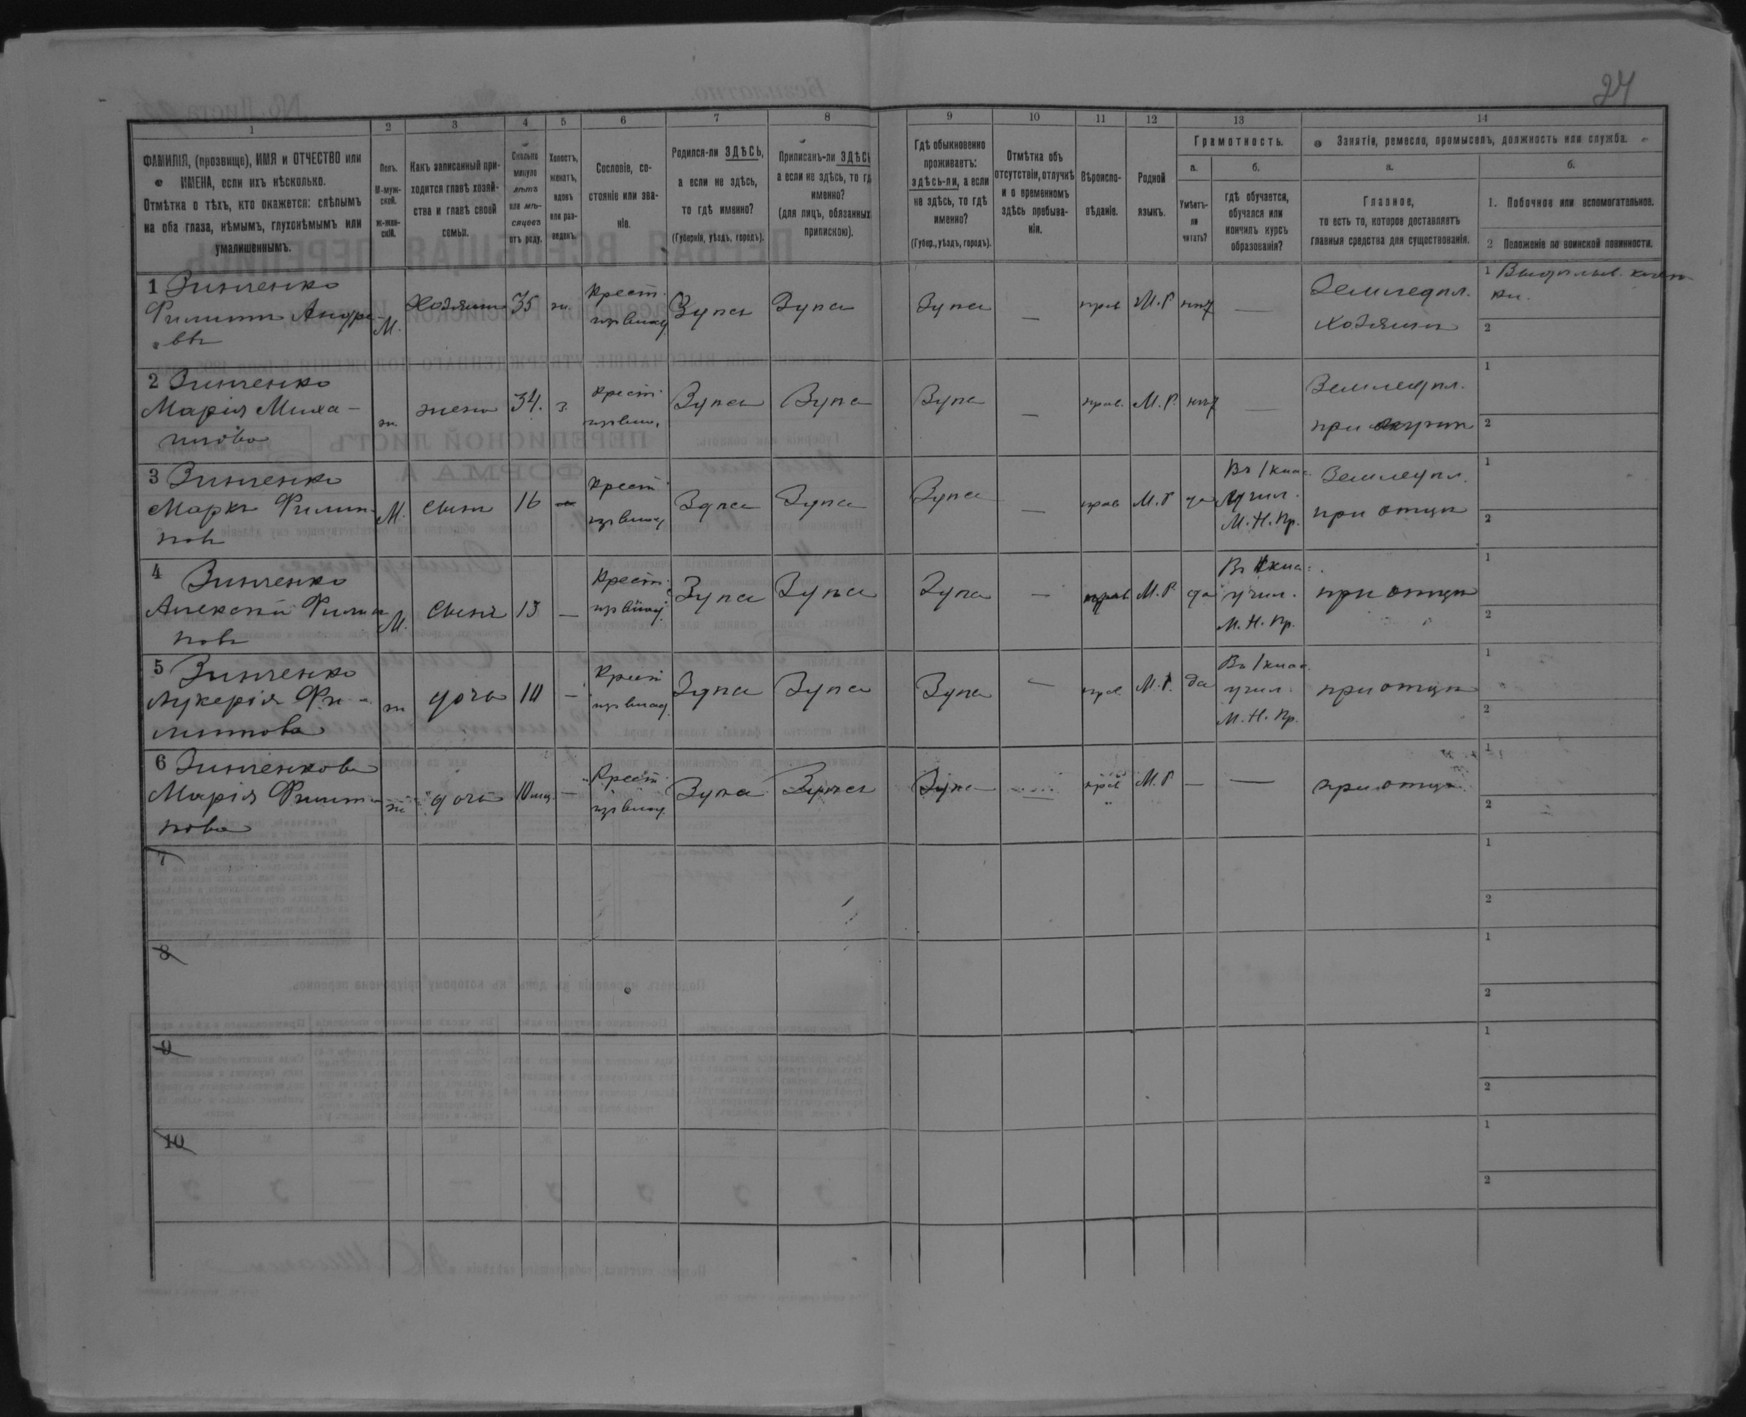 24
1 2 3 4 5 6 7 8 9 10 11 12 13 14
ФАМИЛІЯ, (прозвище), ИМЯ и ОТЧЕСТВО или
ИМЕНА, если ихъ нѣсколько.
Отмѣтка о тѣхъ, кто окажется: слѣпымъ
на оба глаза, нѣмымъ, глухонѣмымъ или
умалишеннымъ.
Полъ.
М-муж-
ской.
Ж-жен-
скій.
Какъ записанный при-
ходится главѣ хозяй-
ства и главѣ своей
семьи.
Сколько
минуло
лѣтъ
или мѣ-
сяцевъ
отъ роду.
Холостъ,
женатъ,
вдовъ
или раз-
веденъ.
Сословіе, со-
стояніе или зва-
ніе.
Родился-ли ЗДѢСЬ,
а если не здѣсь,
то гдѣ именно?
(Губернія, уѣздъ, городъ).
Приписанъ-ли ЗДѢСЬ
а если не здѣсь, то гд
именно?
(для лицъ, обязанных
припискою).
Гдѣ обыкновенно
проживаетъ:
здѣсь-ли, а если
не здѣсь, то гдѣ
именно?
(Губер., уѣздъ, городъ).
Отмѣтка объ
отсутствіи, отлучкѣ
и о временномъ
здѣсь пребыва-
ніи.
Вѣроиспо-
вѣданіе.
Родной
языкъ.
Грамотность.
а.
Умѣетъ-
ли
читать?
б.
гдѣ обучается,
обучался или
кончилъ курсъ
образованія?
Занятія, ремесло, промыселъ, должность или служба.
а.
Главное,
то есть то, которое доставляетъ
главныя средства для существованія.
б.
1. Побочное или вспомогательное.
2 Положеніе по воинской повинности.
1 Зинченко
Филиппъ Андре-
евъ
М. Хозяинъ 35 ж. Крест. Здѣсь Здѣсь Здѣсь — прав М.Р нѣт —
Земледѣл.
Хозяинъ
1
2
2 Зинченко
Марія Миха-
илова
ж жена 34. з. Крест. Здѣсь Здѣсь Здѣсь — прав. М.Р. нѣт —
Земледѣл.
при
1
2
3 Зинченко
Маркъ Филип-
повъ
М. сынъ 16 — Крест. Здѣсь Здѣсь Здѣсь — прав М.Р да
Въ 1 клас.
учил.
М.Н.Пр.
Земледѣл.
при отцѣ
1
2
4 Зинченко
Алексѣй Филип
повъ
М. сынъ 13 — Крест. Здѣсь Здѣсь Здѣсь — прав М.Р да
учил.
М.Н.Пр.
при отцѣ
1
2
5 Зинченко
Лукерія Фи-
липпова
ж дочь 10 — Крест Здѣсь Здѣсь Здѣсь — прав М.Р. да
Въ 1 клас.
учил.
М.Н.Пр.
при отцѣ
1
2
6 Зинченкова
Марія Филип
пова
ж дочь 10 мѣс. — Крест. Здѣсь Здѣсь Здѣсь — прав М.Р — —
при отцѣ
1
2
7
1
2
8
1
2
9
1
2
10
1
2